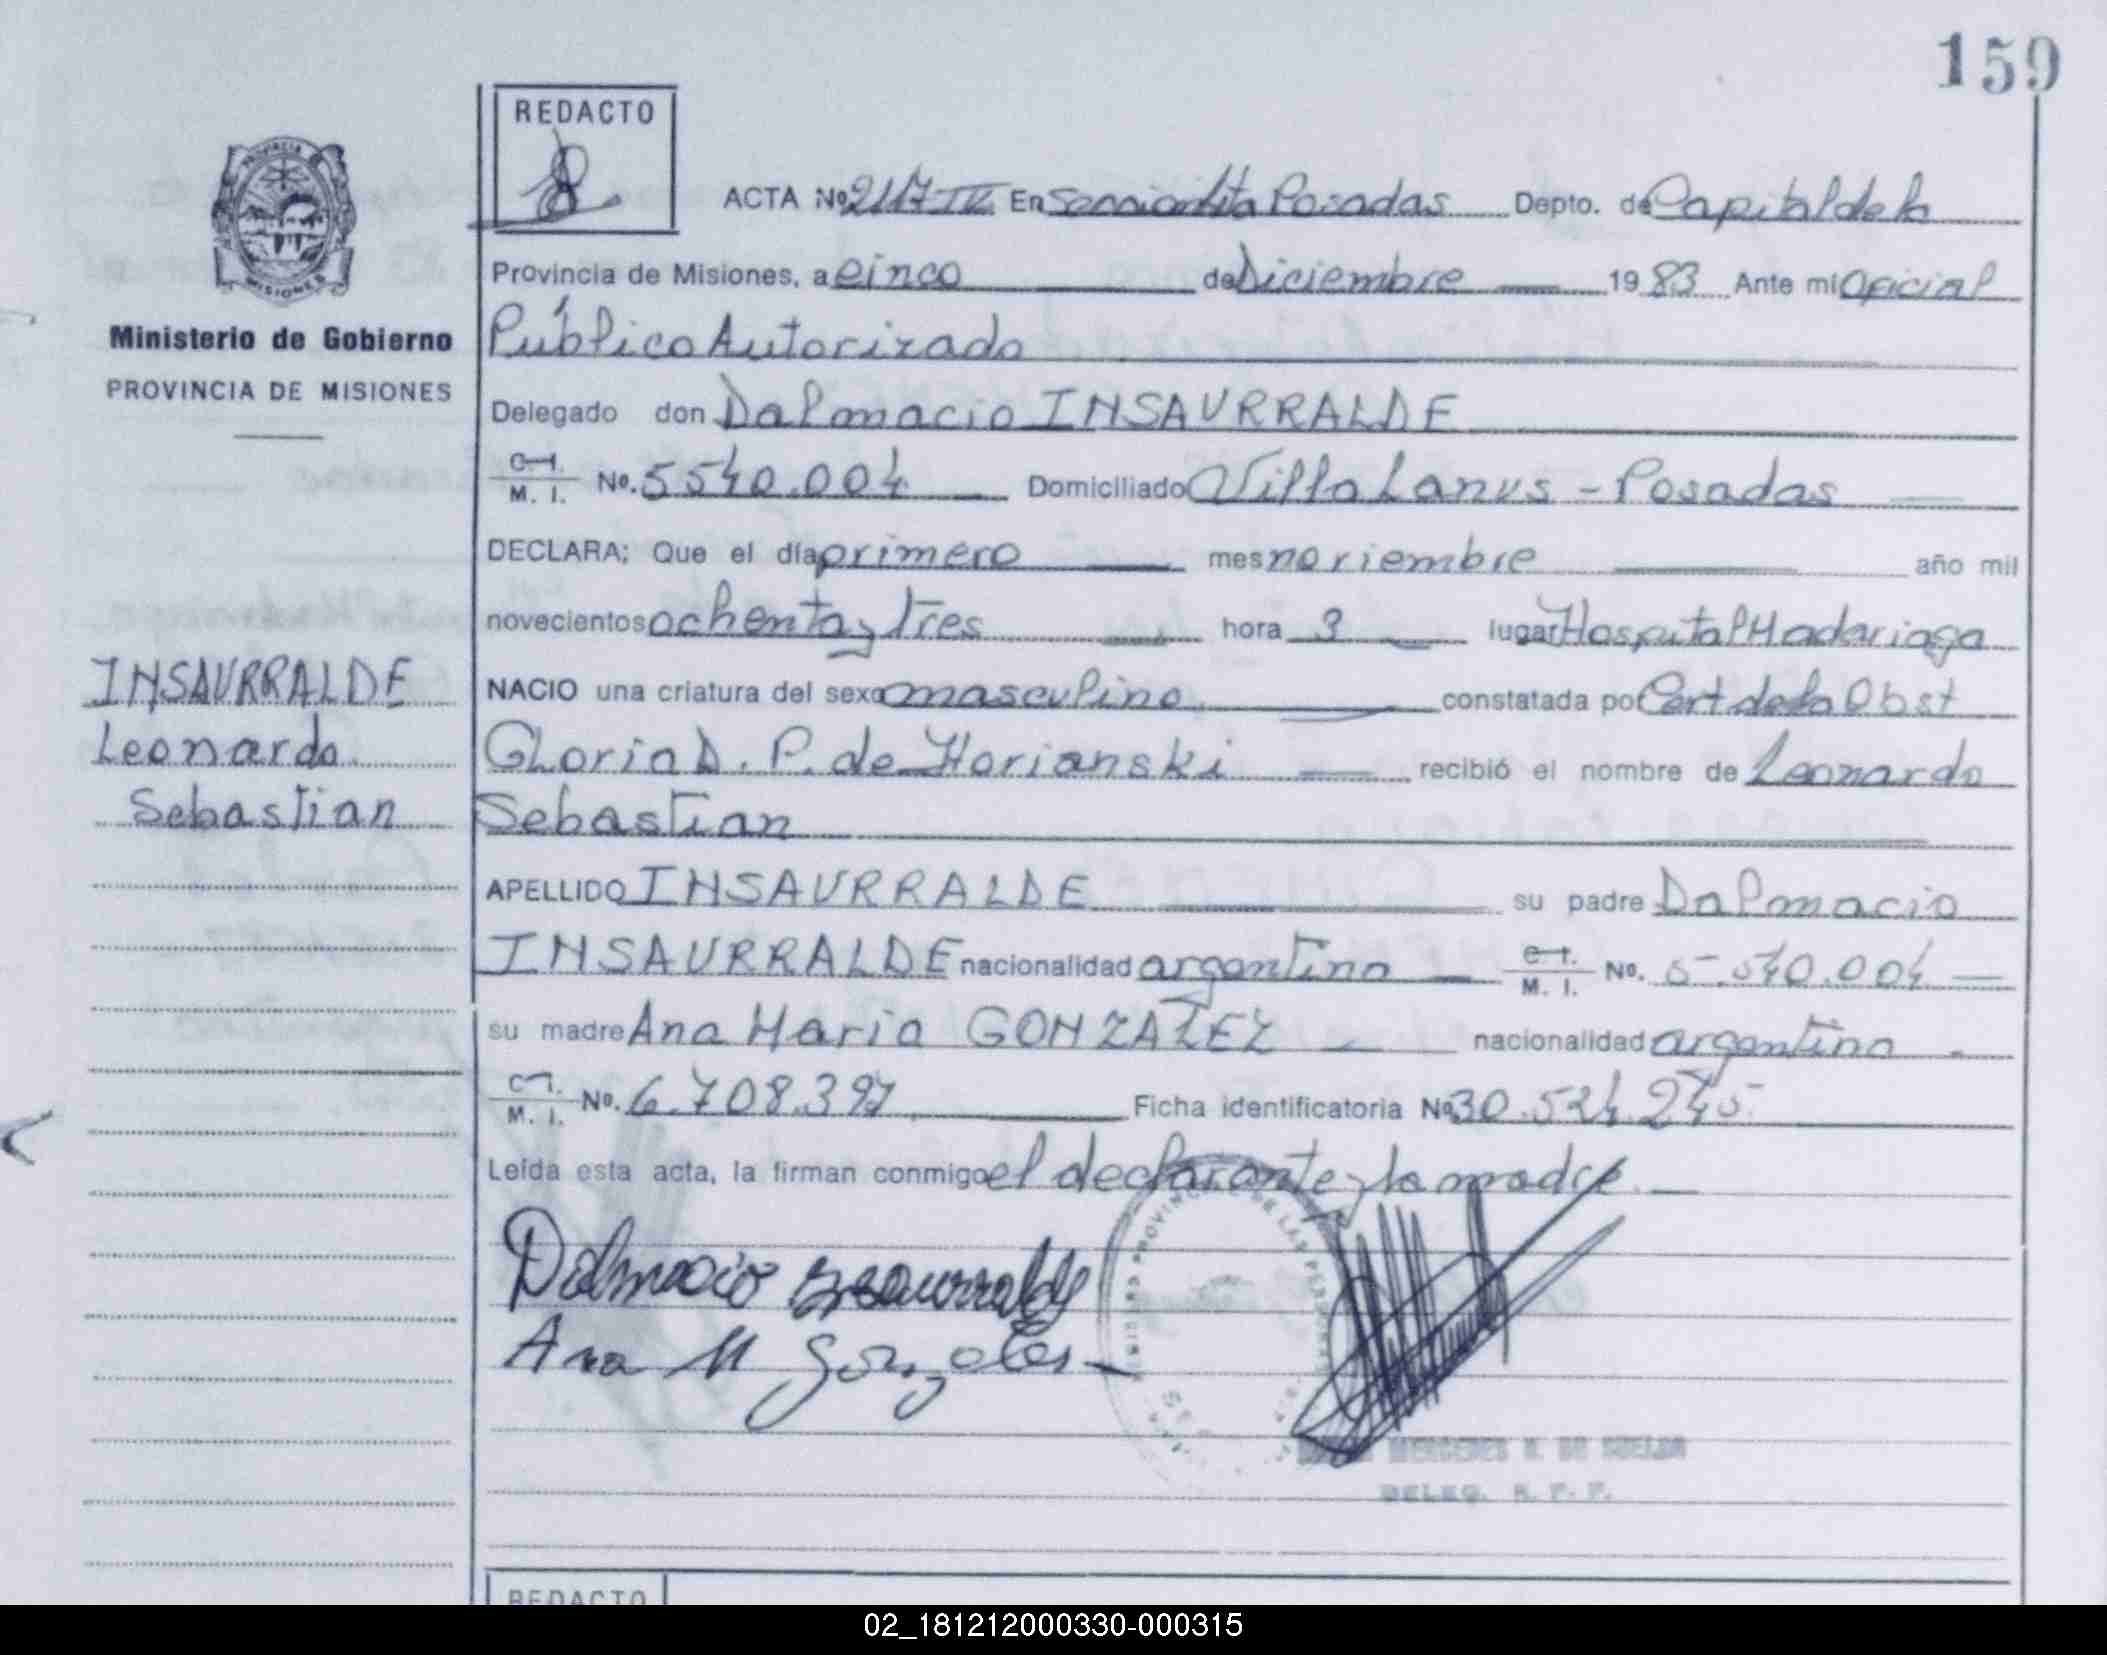 159
REDACTO
PROVINCIA DE MISIONES
Ministerio de Gobierno
PROVINCIA DE MISIONES
INSAURRALDE
Leonardo
Sebastian
ACTA Nº 2117 IV En Posadas Depto. de Capital de la
Provincia de Misiones, a cinco de Diciembre 1983 Ante mi Oficial
Público Autorizado
Delegado don Dalmacio INSAURRALDE
C. I. M. I. Nº. 5540.004 Domiciliado Villa Lanus - Posadas
DECLARA; Que el día primero mes noviembre año mil
novecientos ochenta y tres hora 3 lugar Hospital Madariaga
NACIO una criatura del sexo masculino constatada por Cert de la Obst
Gloria D. P. de Horianski recibió el nombre de Leonardo
Sebastian
APELLIDO INSAURRALDE su padre Dalmacio
INSAURRALDE nacionalidad argentina C. I. M. I. Nº. 5.540.004
su madre Ana Maria GONZALEZ nacionalidad argentina
C. I. M. I. Nº. 6.708.397 Ficha identificatoria Nº 30.524.245
Leída esta acta, la firman conmigo el declarante y la madre
Dalmacio Insaurralde
Ana M Gonzales
MERCEDES
DELEG. R. P. P.
REDACTO
02_181212000330-000315